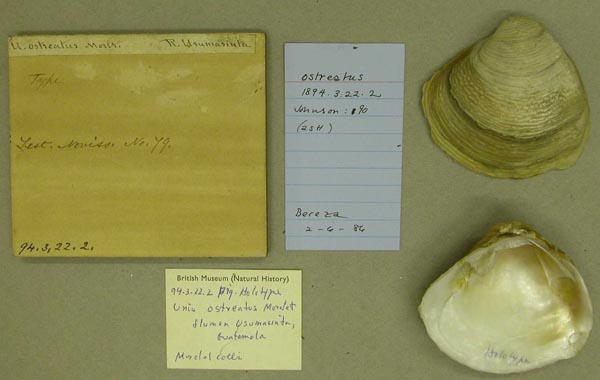 U. ostreatus Morlt. R. Usumasinta
Type
Test. Noviss. No. 79.
94.3.22.2.
ostreatus
1894.3.22.2
Johnson: 90
(25H)
Bereza
2-6-86
British Museum (Natural History)
94.3.22.2 Holotype
Unio ostreatus Morelet
flumen Usumasinta,
Guatemala
Morelet Coll:
Holotype